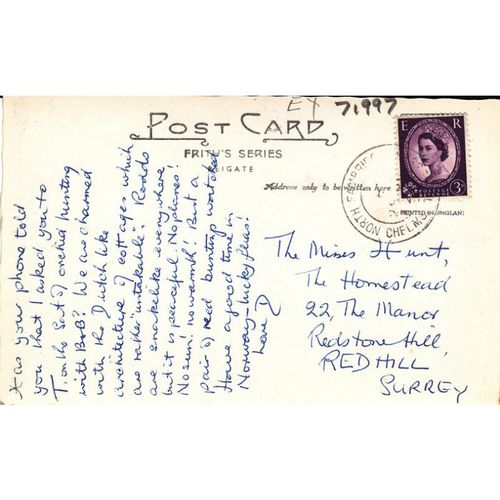 EX 71997
POST CARD
FRITH'S SERIES
REIGATE
Address only to be written here
PRINTED IN ENGLAND
E R
POSTAGE REVENUE
3D
NORTH CHELMS
The Misses Hunt,
The Homestead
22, The Manor
Redstone Hill,
REDHILL
SURREY
Has your phone told
you that I asked you to
T. on the Sat of orchid hunting
with BorB? We are charmed
with the Dutch like
architecture of cottages which
are rather "intakeable" Roads
are snakelike everywhere
but it is peaceful. No planes!
No sun! no warmth! But a
pair of reed bunting watched
Have a good time in
Norway - lucky fleas!
Love D